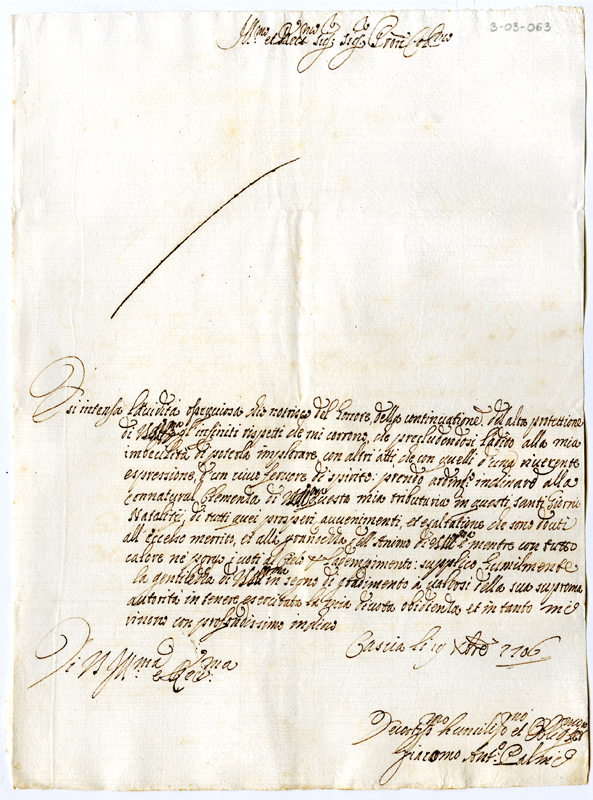 Ill.mo et Rev.mo Sig.r Sig.r P.rone Col.mo
3-03-063
È sì intensa l'avidità ossequiosa che notrisco del honore della continuatione dell'alta protettione
di V.S. Ill.ma e gl'infiniti rispetti che mi corrono, che precludendosi l'adito alla mia
imbecillità di poterla impetrare con altri atti che con quelli d'una riverente
espressione, d'un vivo fervore di spirito: prendo ardim.to inclinare alla
connatural Clemenza di V.S. Ill.ma questa mia tributaria in questi santi Giorni
Natalitij di tutti quei prosperi avvenimenti, et esaltatione che sono dovuti
all'eccelso merito, et alla grandezza dell'Animo di V.S. Ill.ma mentre con tutto
calore ne porgo i voti al Cielo per l'adempimento: supplico humilmente
la gentilezza di V.S. Ill.ma in segno di gradimento à valersi della sua suprema
autorità in tenere esercitata la mia divota obbidienza et in tanto me
inchino con profondissimo inchino
Cascia li 19 Xbre 1706
Di V.S. Ill.ma e Rev.ma
humiliss.mo et
Giacomo Ant.o